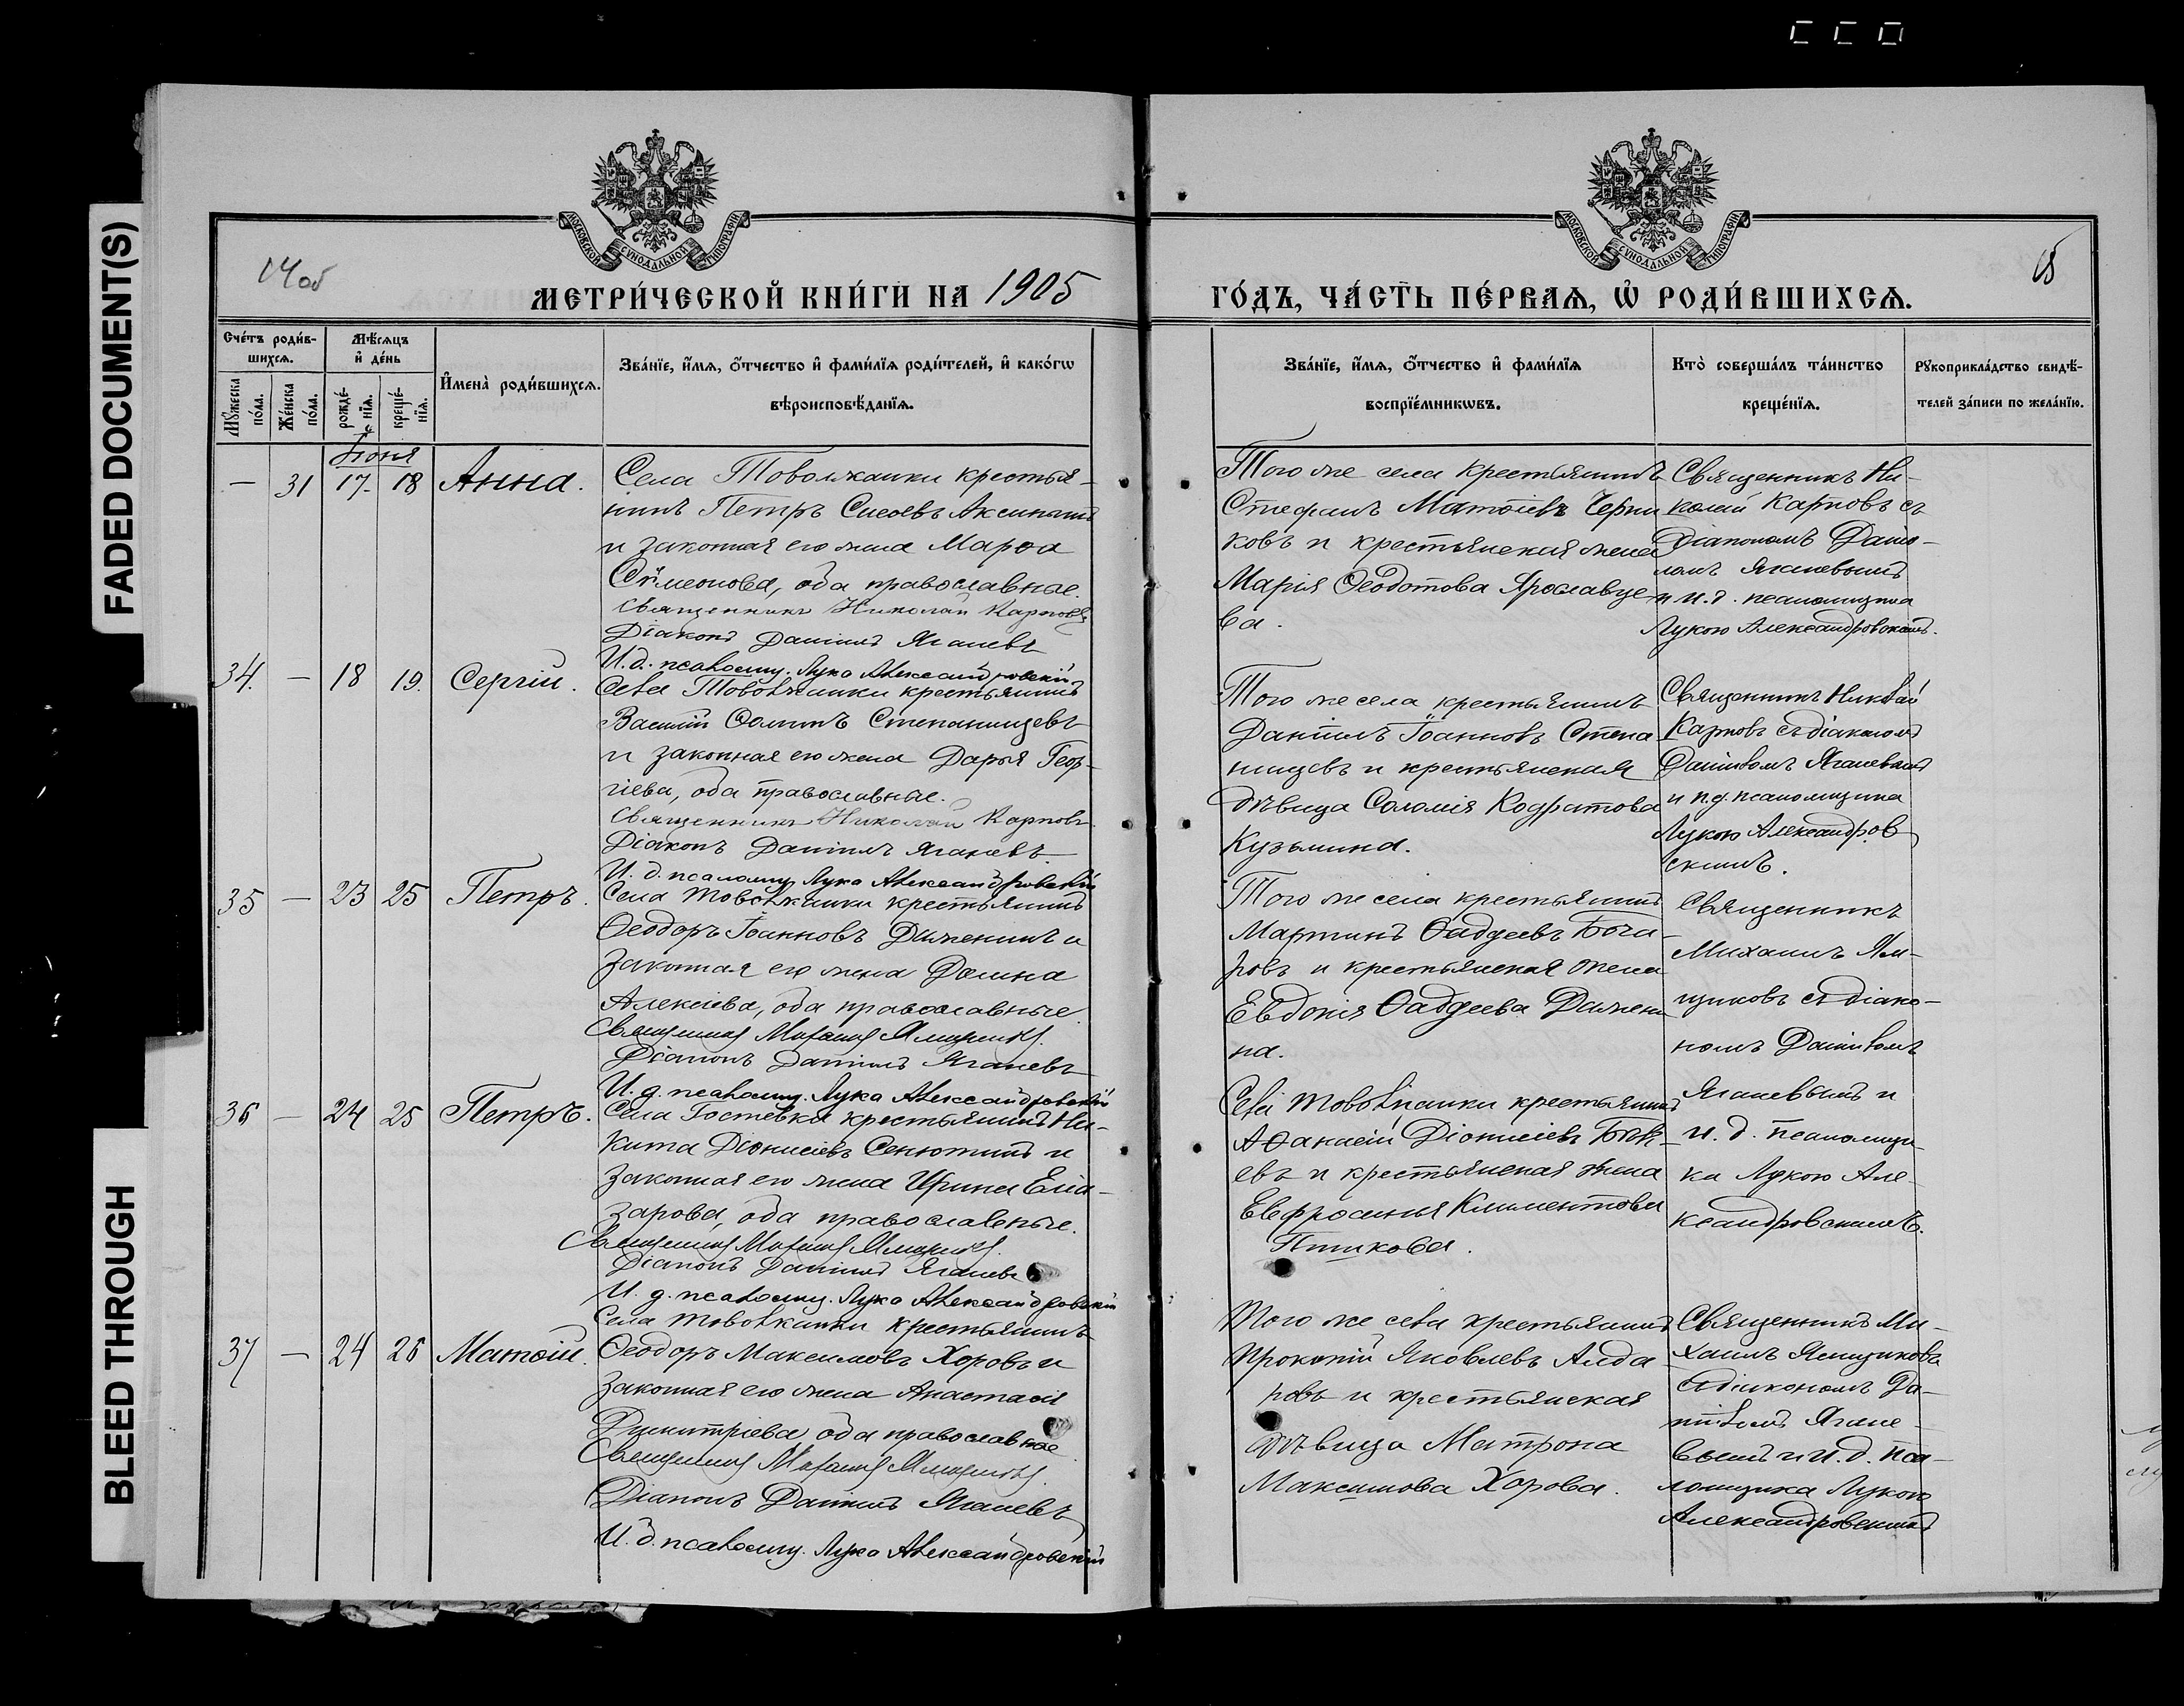 FADED DOCUMENT(S)
BLEED THROUGH
МОСКОВСКОЙ СѴНОДАЛЬНОЙ ТИПОГРАФІИ
МОСКОВСКОЙ СѴНОДАЛЬНОЙ ТИПОГРАФІИ
14об
15
МЕТРИ́ЧЕСКОЙ КНИ́ГИ НА 1905
ГО́ДЪ, ЧА́СТЬ ПЕ́РВАѦ, Ѡ҆ РОДИ́ВШИХСѦ.
Сче́тъ роди́в-
шихсѧ.
Мꙋ́жеска по́ла.
Же́нска по́ла.
Мѣ́сѧцъ
и҆ де́нь
рожде́-
нїѧ.
креще́-
нїѧ.
И҆мена̀ роди́вшихсѧ.
Зва́нїе, и҆́мѧ, ѻ҆́тчество и҆ фами́лїѧ роди́телей, и҆ како́гѡ
вѣроисповѣ́данїѧ.
Зва́нїе, и҆́мѧ, ѻ҆́тчество и҆ фами́лїѧ
воспрїе́мникѡвъ.
Кто̀ соверша́лъ та́инство
креще́нїѧ.
Рꙋкоприкла́дство свидѣ́-
телей за́писи по жела́нїю.
Іюня
— 31 17. 18 Анна.
Села Товолжанки крестья-
нинъ Петръ Сисоевъ Аксинынъ
и законная его жена Марѳа
Сѵмеонова, оба православные.
Священникъ Николай Карповъ
Діаконъ Даніилъ Яганевъ
И.д. псаломщ. Лука Александровскій
Того же села крестьянинъ
Стефанъ Матѳіевъ Черни
ковъ и крестьянская жена
Марія Ѳеодотова Ярославце-
ва.
Священникъ Ни-
колай Карповъ съ
діакономъ Даніи-
ломъ Яганевымъ
и и.д. псаломщика
Лукою Александровскимъ.
34. — 18 19. Сергій.
Села Товолжанки крестьянинъ
Василій Ѳоминъ Степанищевъ
и законная его жена Дарья Геор-
гіева, оба православные.
Священникъ Николай Карповъ
Діаконъ Даніилъ Яганевъ
И. д. псаломщ. Лука Александровскій
Того же села крестьянинъ
Даніилъ Іоанновъ Степа
нищевъ и крестьянская
дѣвица Соломія Кодратова
Кузьмина.
Священникъ Николай
Карповъ съ діакономъ
Даніиломъ Яганевымъ
и и.д. псаломщика
Лукою Александров
скимъ.
35 — 23 25 Петръ.
Села Товолжанки крестьянинъ
Ѳеодоръ Іоанновъ Дымснинъ и
законная его жена Домна
Алексіева, оба православные.
Священникъ Михаилъ Ямщиковъ.
Діаконъ Даніилъ Яганевъ
И. д. псаломщ. Лука Александровскій
Того же села крестьянинъ
Мартинъ Ѳаддеевъ Боча-
ровъ и крестьянская жена
Евдокія Ѳаддеева
на.
Священникъ
Михаилъ Ям-
щиковъ съ діако-
номъ Даніиломъ
Яганевымъ и
и. д. псаломщи-
ка Лукою Але-
ксандровскимъ.
36 — 24 25 Петръ.
Села Гостевки крестьянинъ Ни-
кита Діонисіевъ Сенютинъ и
законная его жена Ирина Елиа-
зарова, оба православные.
Священникъ Михаилъ Ямщиковъ.
Діаконъ Даніилъ Яганевъ
И. д. псаломщ. Лука Александровскій
Села Товолжанки крестьянинъ
Аѳанасій Діонисіевъ Бѣк-
евъ и крестьянская жена
Евфросинья Климентова
Птикова.
37 — 24 26 Матѳій.
Села Товолжанки крестьянинъ
Ѳеодоръ Максимовъ Хоровъ и
законная его жена Анастасія
Димитріева оба православные
Священникъ Михаилъ Ямщиковъ.
Діаконъ Даніилъ Яганевъ
И. д. псаломщ. Лука Александровскій
Того же села крестьянинъ
Прокопій Яковлевъ Алда
ровъ и крестьянская
дѣвица Матрона
Максимова Хорова.
Священникъ Ми-
хаилъ Ямщиковъ
съ діакономъ Да-
ніиломъ Ягане-
вымъ и И. д. пса-
ломщика Лукою
Александровскимъ